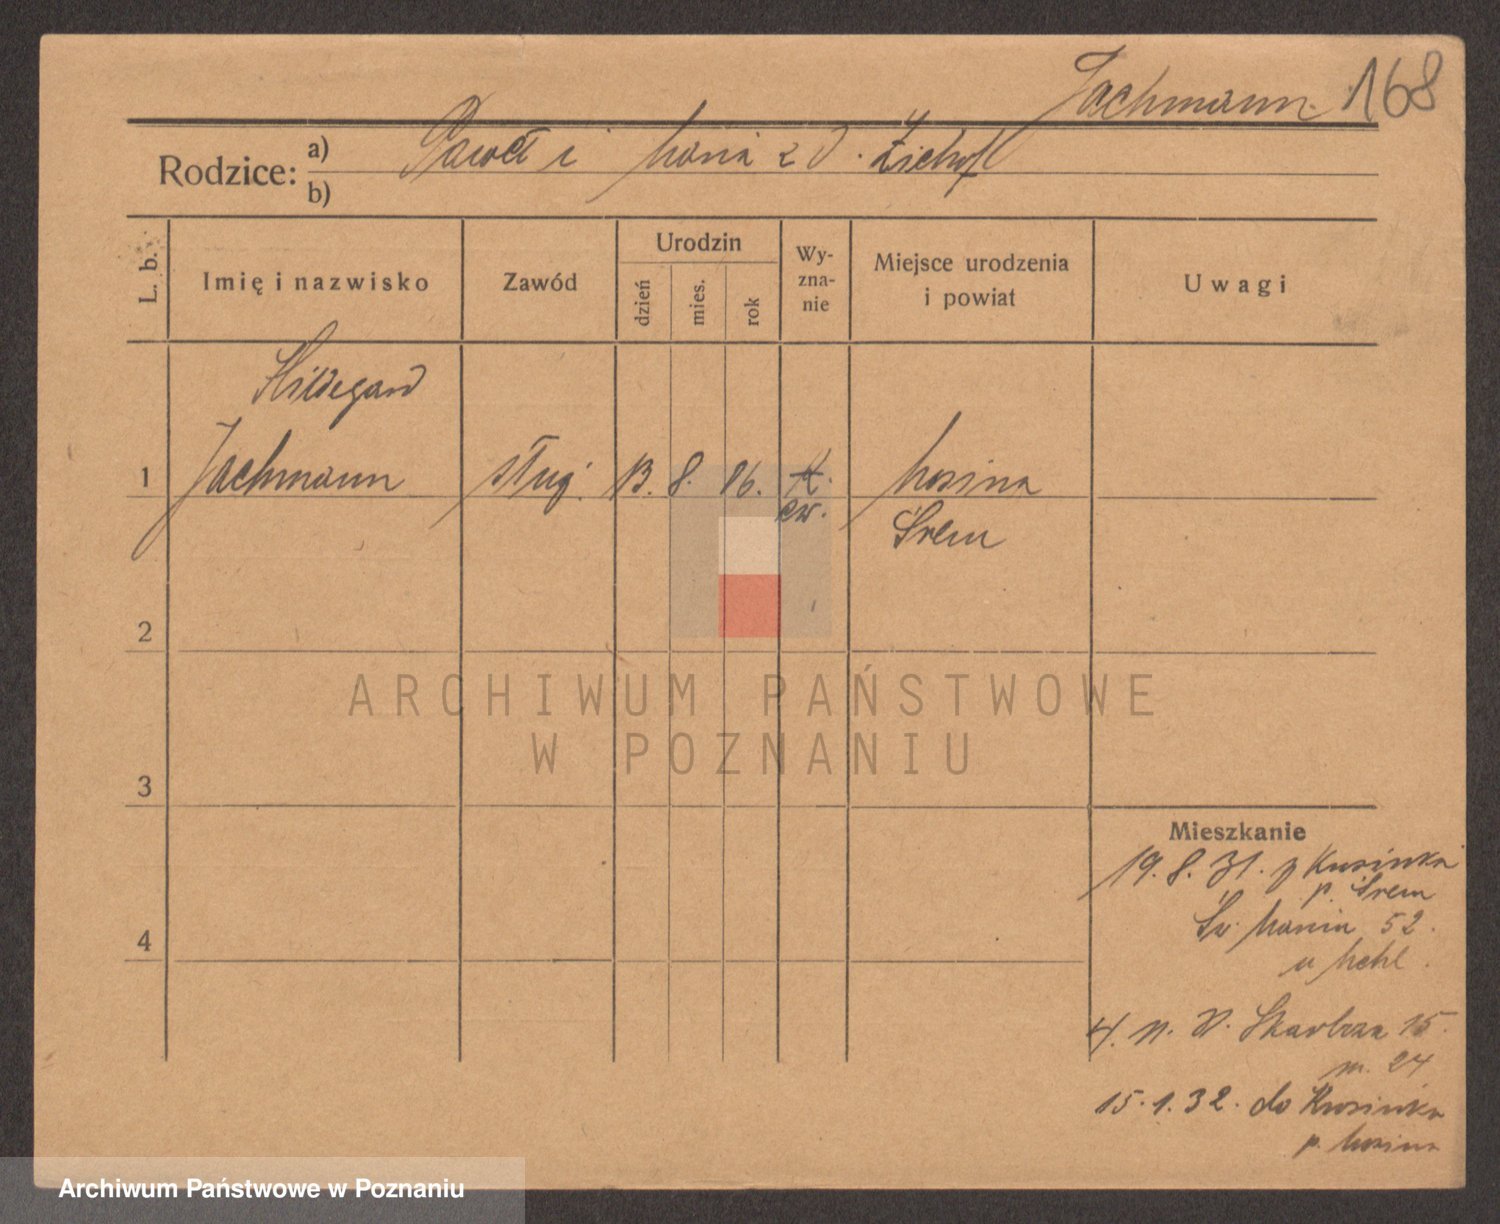 Jachmann. 168
Rodzice: a) Paweł i Maria z d. Zichoft
b)
L. b.
Imię i nazwisko
Zawód
Urodzin
dzień
mies.
rok
Wy-
zna-
nie
Miejsce urodzenia
i powiat
Uwagi
Hildegard
1 Jachmann służ. 13. 8. 16. K. Mosina
ew. Śrem
2
3
4
ARCHIWUM PAŃSTWOWE
W POZNANIU
Mieszkanie
19. 8. 31. z Krosinka
p. Śrem
Św. Marcin 52.
u
4. 11. W. Skarbka 15.
m. 24
15. 1. 32. do Krosinka
p. Mosina
Archiwum Państwowe w Poznaniu